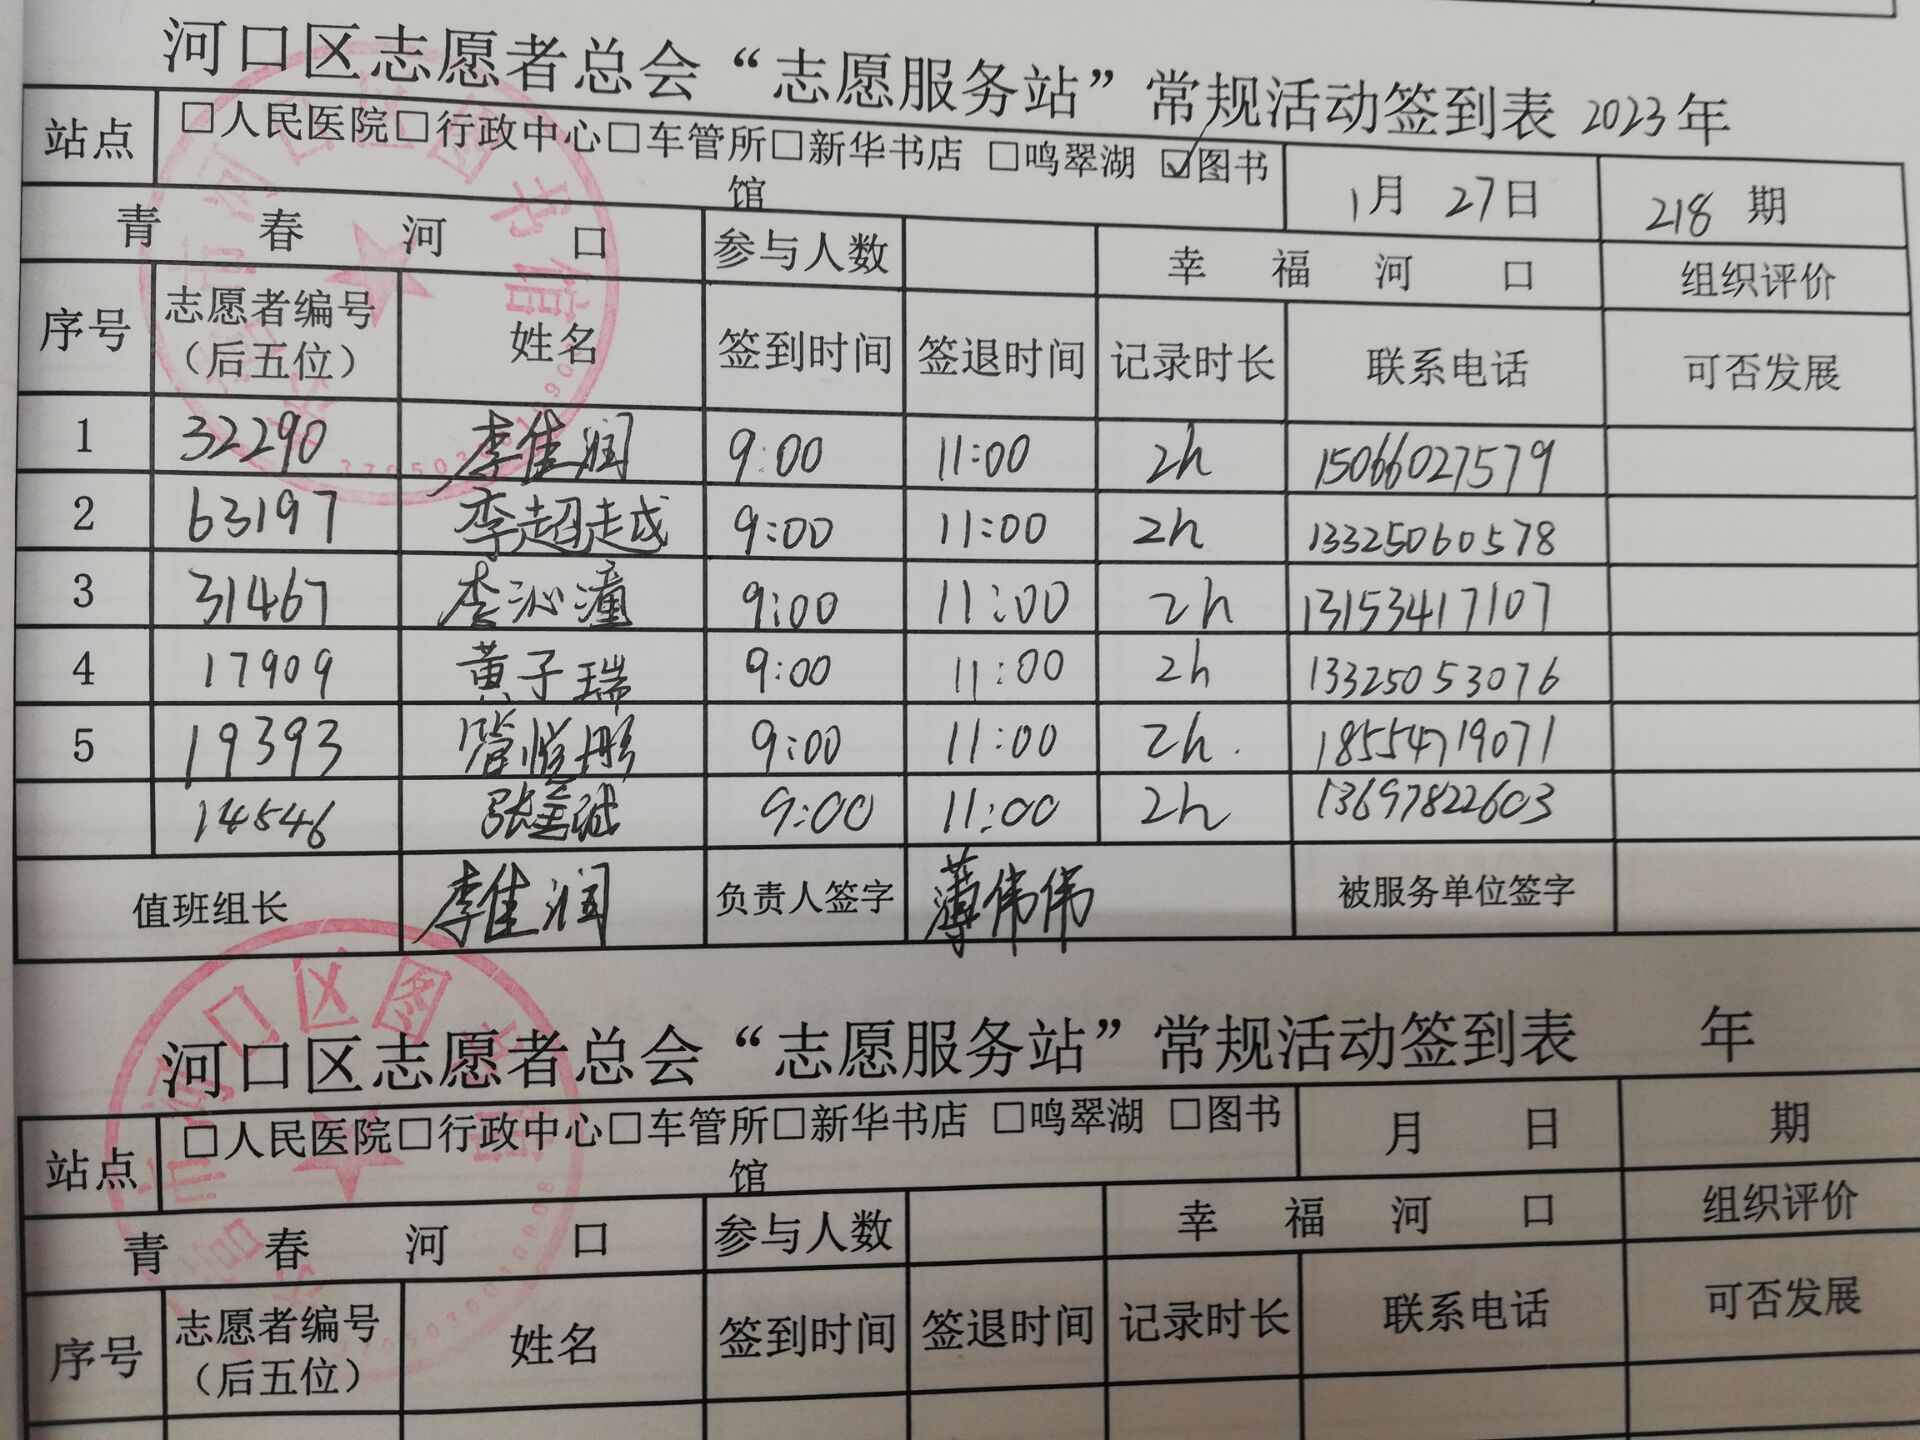 河口区志愿者总会“志愿服务站”常规活动签到表 2023年
站点 □人民医院□行政中心□车管所□新华书店 □鸣翠湖 ☑图书馆 1月 27日 218 期
青 春 河 口 参与人数 幸 福 河 口 组织评价
序号 志愿者编号（后五位） 姓名 签到时间 签退时间 记录时长 联系电话 可否发展
1 32290 李佳润 9:00 11:00 2h 15066027579
2 63197 李超越 9:00 11:00 2h 13325060578
3 31467 李沁潼 9:00 11:00 2h 13153417107
4 17909 黄子瑞 9:00 11:00 2h 13325053076
5 19393 管悦彤 9:00 11:00 2h. 18554719071
14546 9:00 11:00 2h 13697822603
值班组长 李佳润 负责人签字 薄伟伟 被服务单位签字
河口区志愿者总会“志愿服务站”常规活动签到表 年
站点 □人民医院□行政中心□车管所□新华书店 □鸣翠湖 □图书馆 月 日 期
青 春 河 口 参与人数 幸 福 河 口 组织评价
序号 志愿者编号（后五位） 姓名 签到时间 签退时间 记录时长 联系电话 可否发展